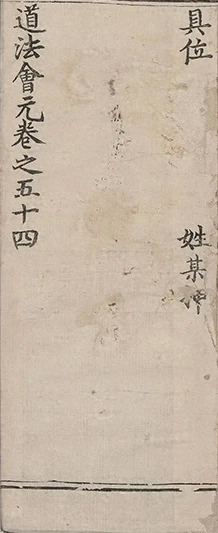 具位 姓某押
道法會元卷之五十四